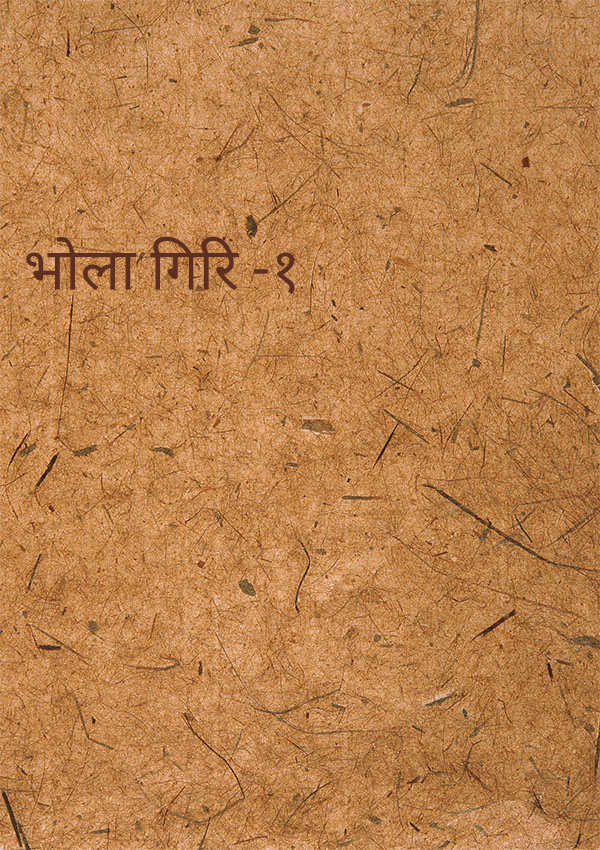 भोला गिरि -१